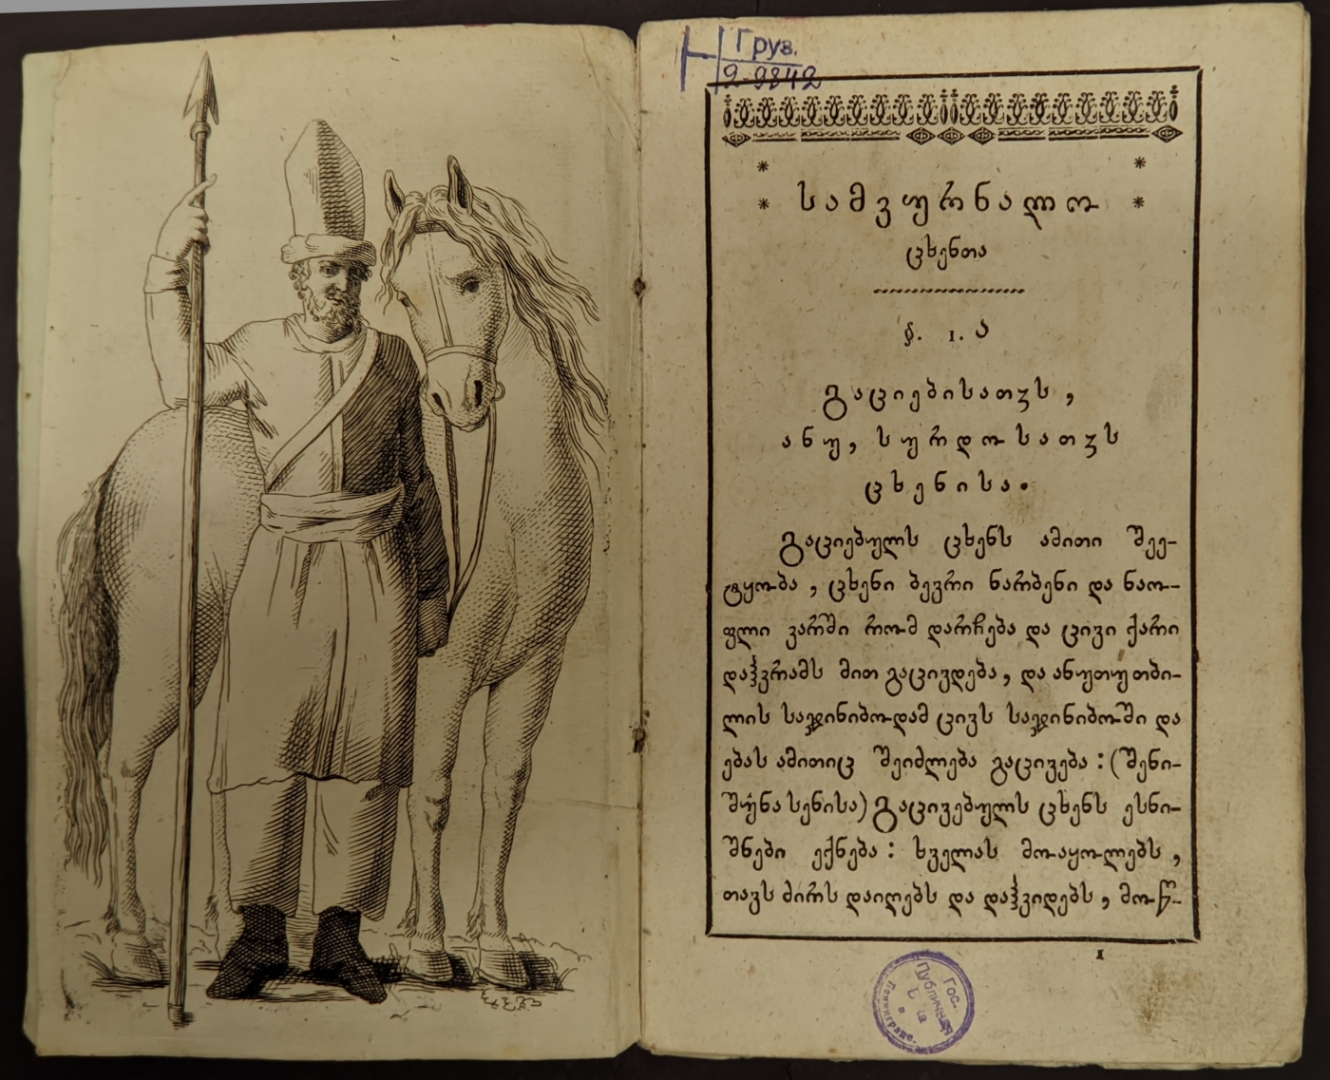 Груз.
2-9842
სამკურნალო
ცხენთა
§. 1. ა
გაციებისათჳს,
ანუ, სურდოსათჳს
ცხენისა.
გაციებულს ცხენს ამითი შეე-
ტყობა, ცხენი ბევრი ნარბენი და ნაო-
ფლი კარში რომ დარჩება და ცივი ქარი
დაჰკრამს მით გაცივდება, და ანუთუ თბი-
ლის საჯინიბოდამ ცივს საჯინიბოში და
ებას ამითიც შეიძლება გაცივება: (შენი-
შუნა სენისა) გაცივებულს ცხენს ესნი-
შნები ექნება: ხველას მოაყოლებს,
თავს ძირს დაიღებს და დაჰკიდებს, მოწ-
1
Гос.
Публичная